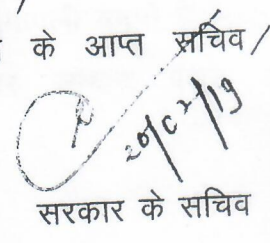 के आप्त सचिव/
20/02/19
सरकार के सचिव